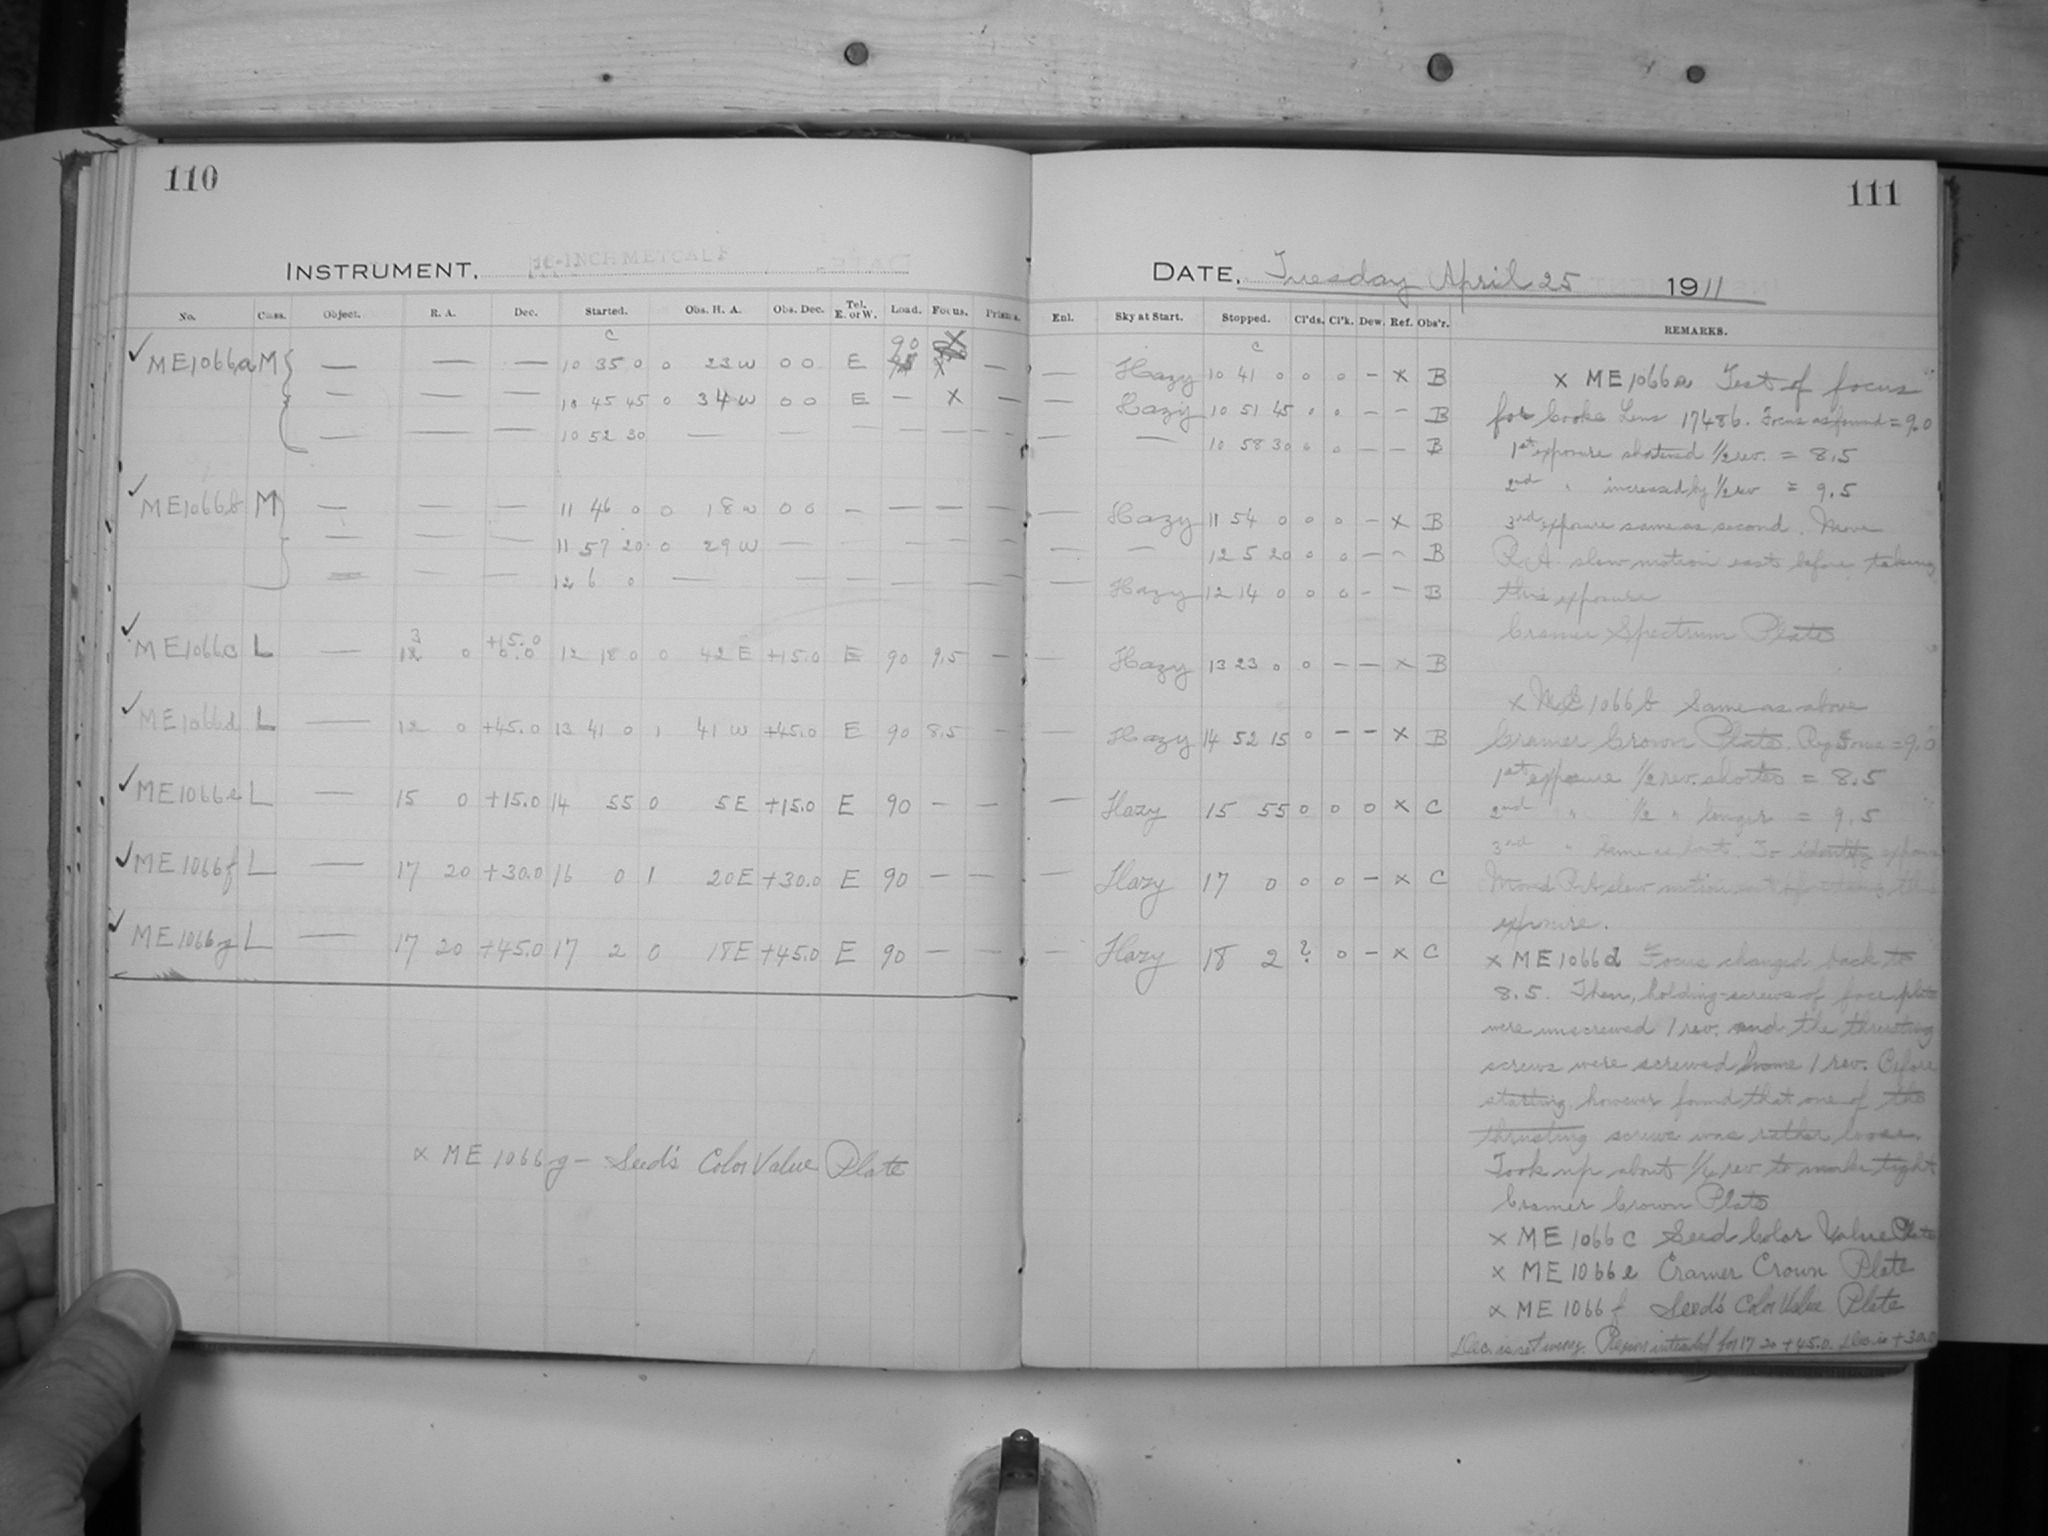 110
INSTRUMENT. 16-INCH METCALF
No. Class. Object. R. A. Dec. Started. Obs. H. A. Obs. Dec. Tel. E. or W. Load. Focus. Prisms.
C
90 X
✓ ME1066a M { — — — 10 35 0 0 23 W 0 0 E X —
— — — 10 45 45 0 34 W 0 0 E — X —
— — — 10 52 30 — — — — — —
✓ ME1066b M — — — 11 46 0 0 18 W 0 0 — — — —
— — — 11 57 20 0 29 W — — — — —
— — — 12 6 0 — — — — — —
3 +15.0
✓ ME1066c L — 12 0 0.0 12 18 0 0 42 E +15.0 E 90 9.5 —
✓ ME1066d L — 12 0 +45.0 13 41 0 1 41 W +45.0 E 90 8.5 —
✓ ME1066e L — 15 0 +15.0 14 55 0 5 E +15.0 E 90 — —
✓ ME1066f L — 17 20 +30.0 16 0 1 20 E +30.0 E 90 — —
✓ ME1066g L — 17 20 +45.0 17 2 0 18 E +45.0 E 90 — —
x ME1066g – Seed's Color Value Plate
111
DATE. Tuesday April 25 1911
Enl. Sky at Start. Stopped. Cl'ds. Cl'k. Dew. Ref. Obs'r. REMARKS.
C
— Hazy 10 41 0 0 0 — x B
— Hazy 10 51 45 0 0 — — B
— — 10 58 30 0 0 — — B
— Hazy 11 54 0 0 0 — x B
— — 12 5 20 0 0 — — B
— Hazy 12 14 0 0 0 — — B
— Hazy 13 23 0 0 — — x B
— Hazy 14 52 15 0 — — x B
— Hazy 15 55 0 0 0 x C
— Hazy 17 0 0 0 — x C
— Hazy 18 2 ? 0 — x C
x ME1066a Test of focus
for Cooke Lens 17486. Focus as found = 9.0
1st exposure shortened 1/2 rev. = 8.5
2nd " increased by 1/2 rev = 9.5
3rd exposure same as second. Move
R.A. slow motion east before taking
this exposure
Cramer Spectrum Plate
x ME 1066b Same as above
Cramer Crown Plate. Reg Focus = 9.0
1st exposure 1/2 rev. shorter = 8.5
2nd " 1/2 " longer = 9.5
3rd " same as last. To identify exposure
Moved R.A. slow motion
exposure.
x ME1066d Focus changed back to
8.5. Then, holding-screws of face plate
were unscrewed 1 rev. and the thrusting
screws were screwed home 1 rev. Before
starting, however found that one of the
thrusting screws was rather loose.
Took up about 1/6 rev to make tight
Cramer Crown Plate
x ME1066c Seed Color Value Plate
x ME1066e Cramer Crown Plate
x ME1066f Seed's Color Value Plate
Dec. is set wrong. Region intended for 17 20 +45.0. Dec is +30.0